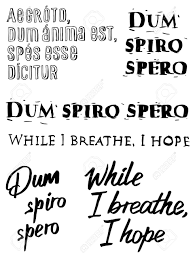 Aegróto,
dum ánima est,
spés esse
dícitur
Dum
spiro
spero
Dum spiro spero
While I breathe, I hope
Dum
spiro
spero
While
I breathe,
I hope